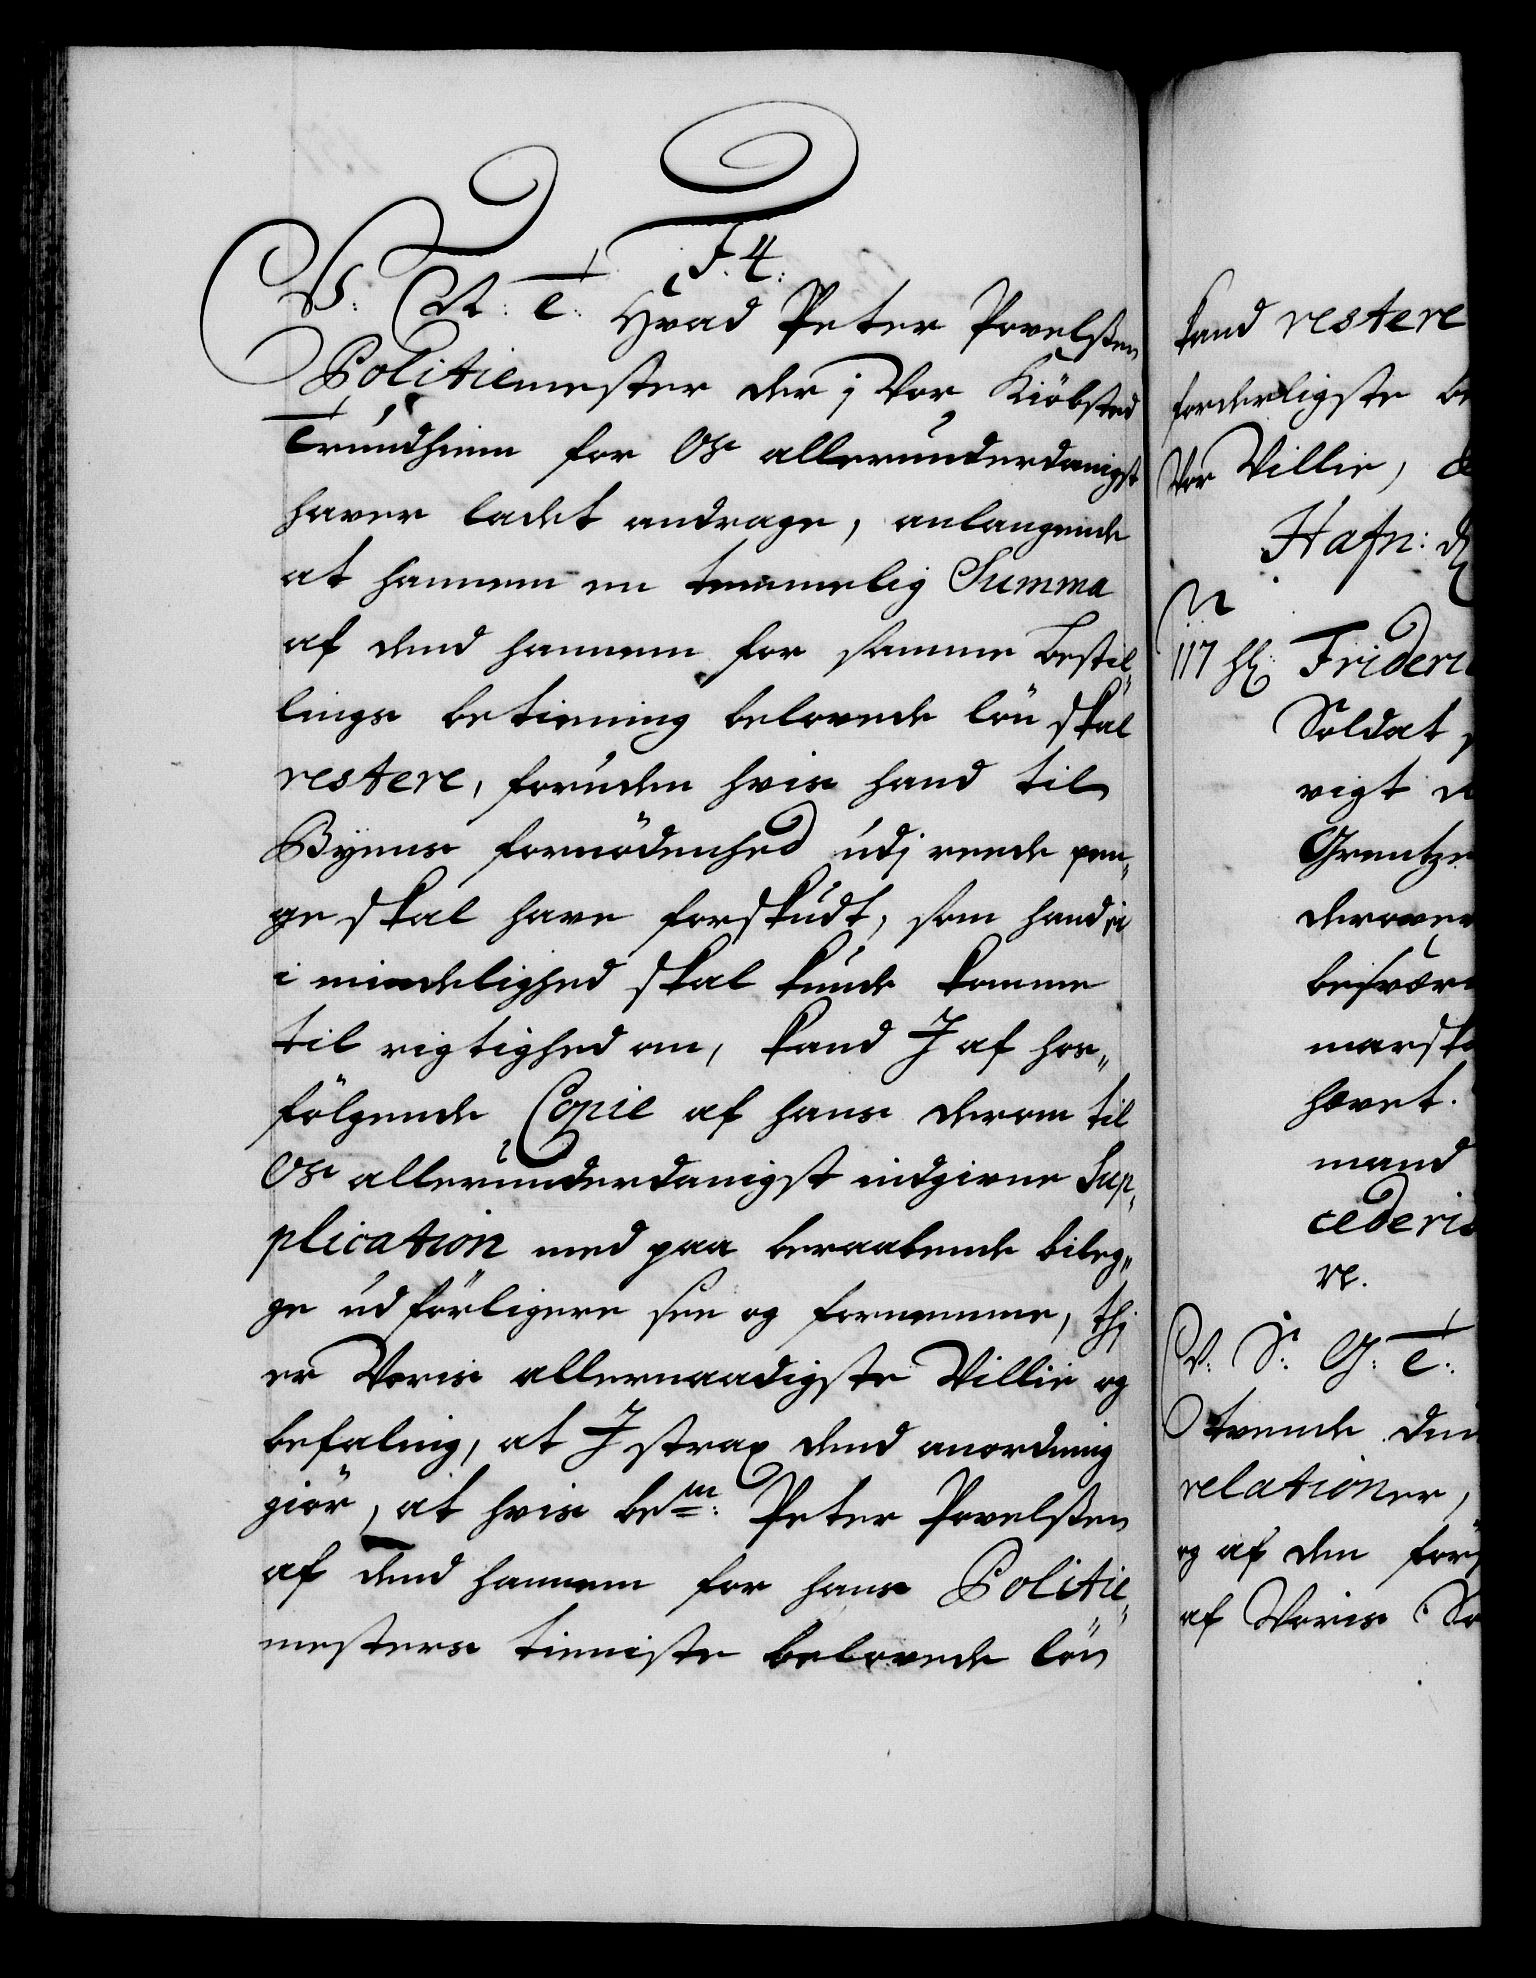 F. 4.
V. A. T. Hvad Peter Povelßen
Politiemester der j Vor Kiöbsted
Trundhiem for Os allerunderdanigst
haver ladet andrage, anlangende
at hannem en temmelig Summa
af dend hannem for samme bestil„
lings betiening belovede lön skal
restere, foruden hvis hand til
Byens fornödenhed udj reede pen„
ge skal have forskudt, som hand ei
i mindelighed skal kunde komme
til rigtighed om, kand J af hos„
fölgende Copie af hans derom til
Os allerunderdanigst indgivne Sup„
plication med paa beraabende bileg„
ge udförligere see og fornemme, thj
er Voris allernaadigste Villie og
befaling, at J strax dend anordning
giör, at hvis bem.te: Peter Povelßen
af dend hannem for hans Politie„
mesters tieniste belovede lön
kand restere
forderligste be
Vor Villie, d
Hafn: d
117 Frideric
Soldat
vigt d
Grentze
derover
besvær
marsk
hovet.
mand
cederi
re.
V. S: G: T:
tvende den
relationer,
og af den förs
af Voris So